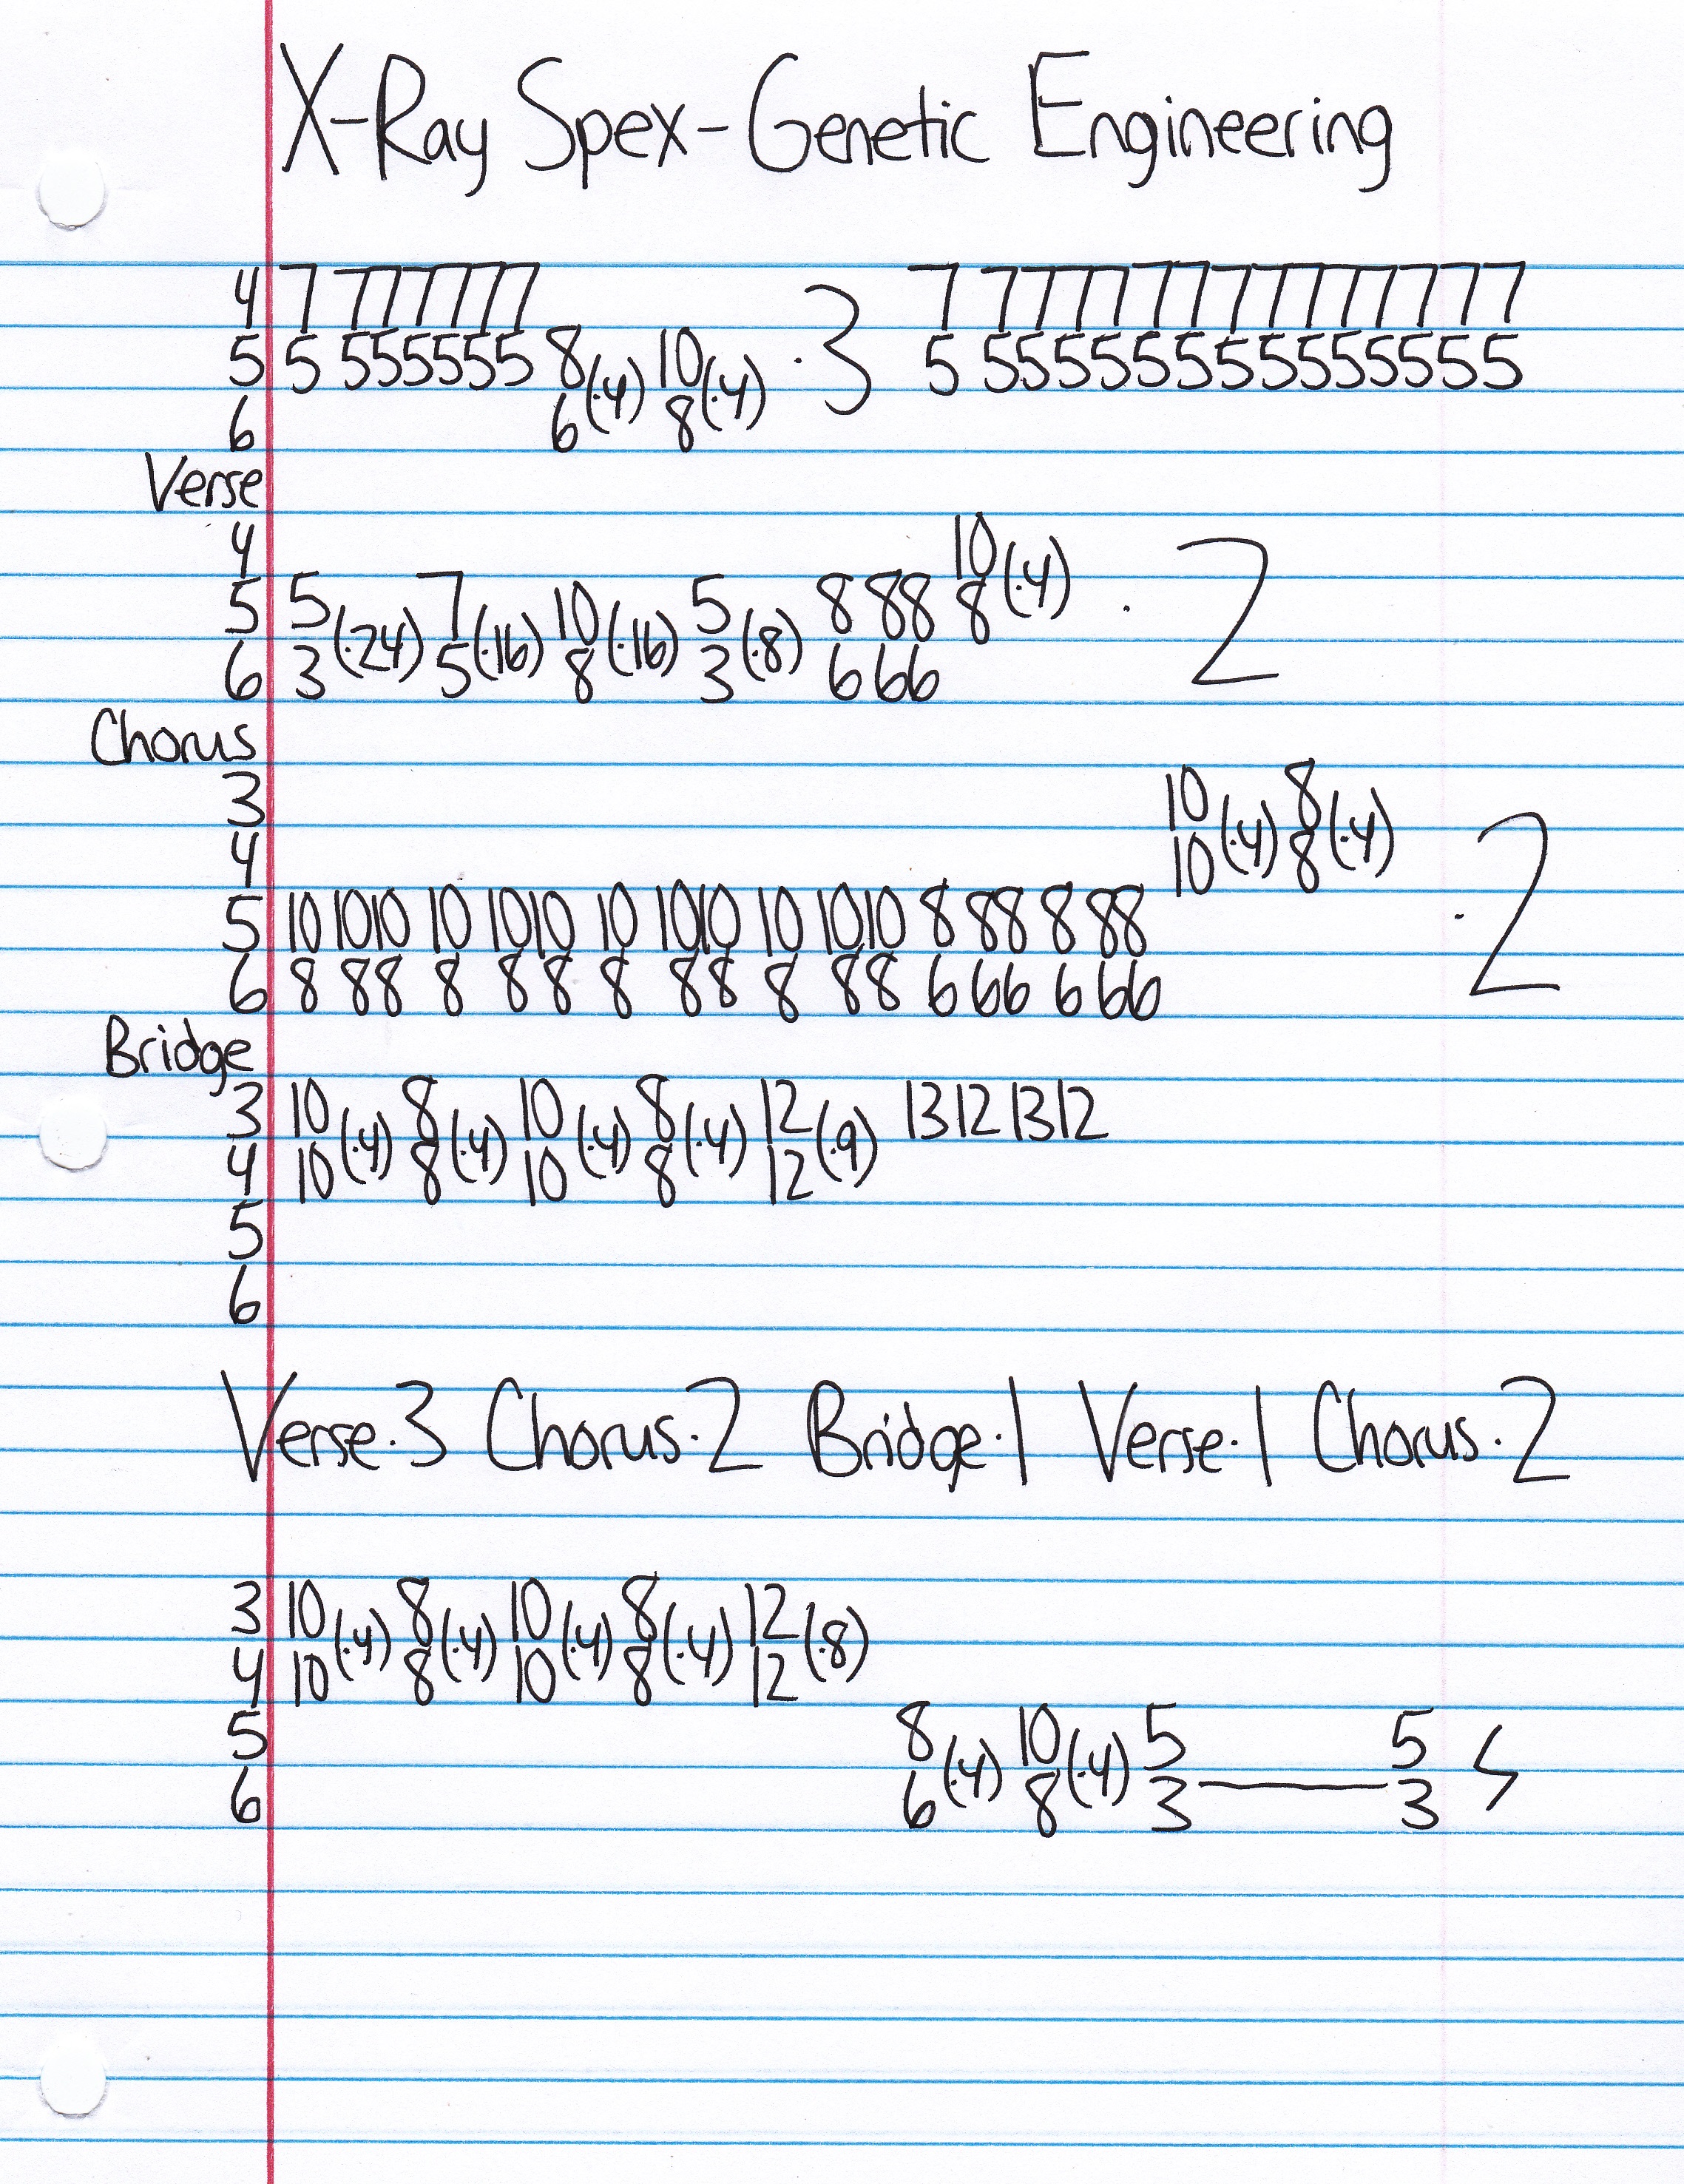 X-Ray Spex-Genetic Engineering
4 7 777777 7 77777777777777
5 5 555555 8(·4) 10(·4) ·3 5 55555555555555
6 6 8
Verse
4 10(·4)
5 5(·24) 7(·16) 10(·16) 5(·8) 8 88 8 ·2
6 3 5 8 3 6 66
Chorus
3 10(·4) 8(·4)
4 10 8
5 10 1010 10 1010 10 1010 10 1010 8 88 8 88 ·2
6 8 88 8 88 8 88 8 88 6 66 6 66
Bridge
3 10(·4) 8(·4) 10(·4) 8(·4) 12(·9) 13121312
4 10 8 10 8 12
5
6
Verse·3 Chorus·2 Bridge·1 Verse·1 Chorus·2
3 10(·4) 8(·4) 10(·4) 8(·4) 12(·8)
4 10 8 10 8 12
5 8(·4) 10(·4) 5 5
6 6 8 3 — 3